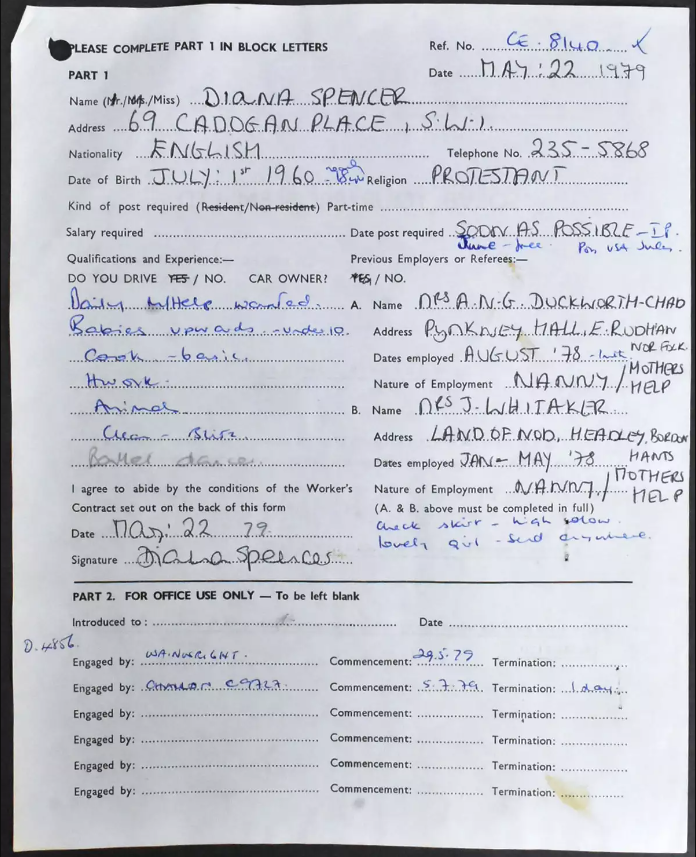 PLEASE COMPLETE PART 1 IN BLOCK LETTERS
Ref. No. CE · 8140
PART 1
Date MAY : 22 1979
Name (Mr./Mrs./Miss) DIANA SPENCER
Address 69 CADOGAN PLACE, S.W.1.
Nationality ENGLISH Telephone No. 235-5868
Date of Birth JULY: 1st 1960 Religion PROTESTANT
Kind of post required (Resident/Non-resident) Part-time
Salary required Date post required SOON AS POSSIBLE
June - free. USA July.
Qualifications and Experience:— Previous Employers or Referees:—
DO YOU DRIVE YES / NO. CAR OWNER? YES / NO.
Daily M/Help wanted. A. Name MRS A.N.G. DUCKWORTH-CHAD
Babies upwards - under 10. Address PYNKNEY HALL, E. RUDHAN
NORFOLK
Cook - basic. Dates employed AUGUST '78
Hwork. Nature of Employment NANNY / MOTHERS HELP
Animal B. Name MRS J. WHITAKER
Clean - Address LAND OF NOD, HEADLEY, BORDON
HANTS
Ballet dance. Dates employed JAN - MAY '78
I agree to abide by the conditions of the Worker's Nature of Employment NANNY / MOTHERS HELP
Contract set out on the back of this form (A. & B. above must be completed in full)
Date May: 22 79. check skirt - high
lovely girl - send anywhere.
Signature Diana Spencer
PART 2. FOR OFFICE USE ONLY — To be left blank
Introduced to : Date
D. 4856.
Engaged by: WAINWRIGHT. Commencement: 29.5.79 Termination:
Engaged by: C9727 Commencement: 5.7.79. Termination: 1 day.
Engaged by: Commencement: Termination:
Engaged by: Commencement: Termination:
Engaged by: Commencement: Termination:
Engaged by: Commencement: Termination: